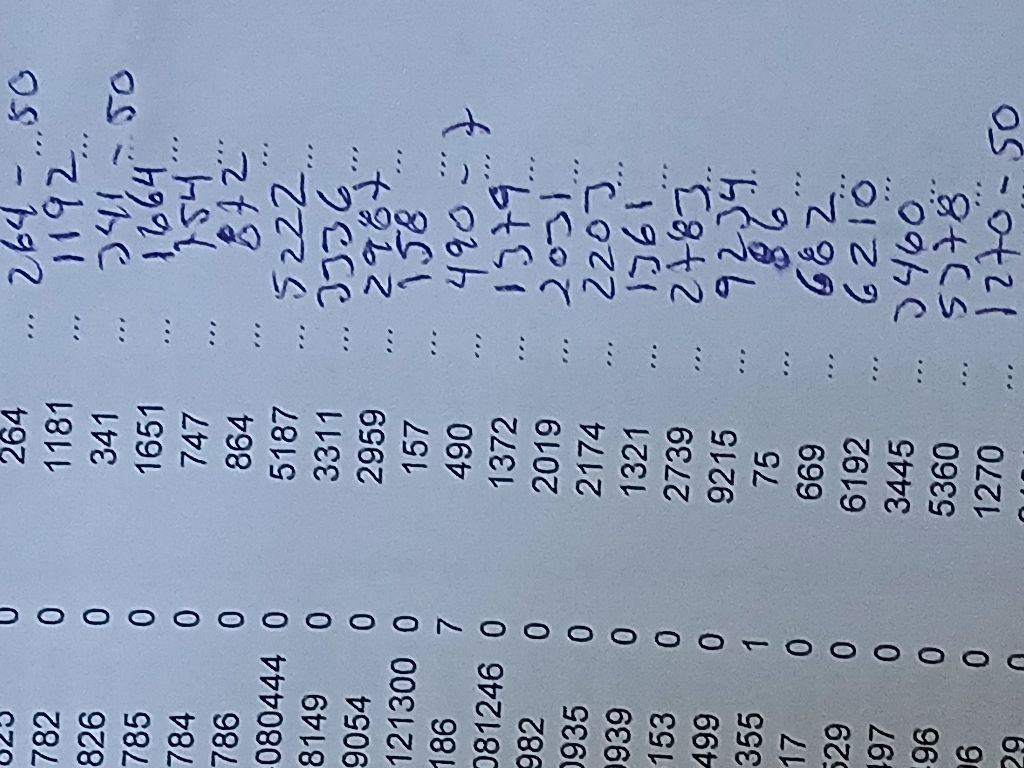 823 0 264 ... 264 - ... 50
782 0 1181 ... 1192 ...
826 0 341 ... 341 - ... 50
785 0 1651 ... 1664 ...
784 0 747 ... 754 ...
786 0 864 ... 872 ...
080444 0 5187 ... 5222 ...
8149 0 3311 ... 3336 ...
9054 0 2959 ... 2987 ...
121300 0 157 ... 158 ...
186 7 490 ... 490 - ... 7
081246 0 1372 ... 1379 ...
982 0 2019 ... 2031 ...
0935 0 2174 ... 2203 ...
0939 0 1321 ... 1361 ...
153 0 2739 ... 2783 ...
499 0 9215 ... 9234 ...
355 1 75 ... 86 ...
17 0 669 ... 682 ...
529 0 6192 ... 6210 ...
497 0 3445 ... 3460 ...
96 0 5360 ... 5378 ...
6 0 1270 ... 1270 - 50
29 0